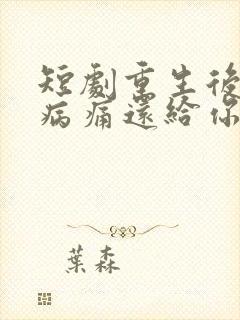 短劇重生後
病痛還給你
葉森